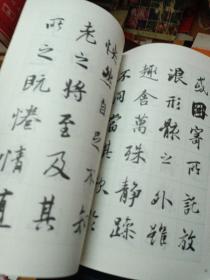 或因寄所託放
浪形骸之外雖
趣舍萬殊靜躁
不同當其欣
快然自足不
老之將至及其
所之既惓情